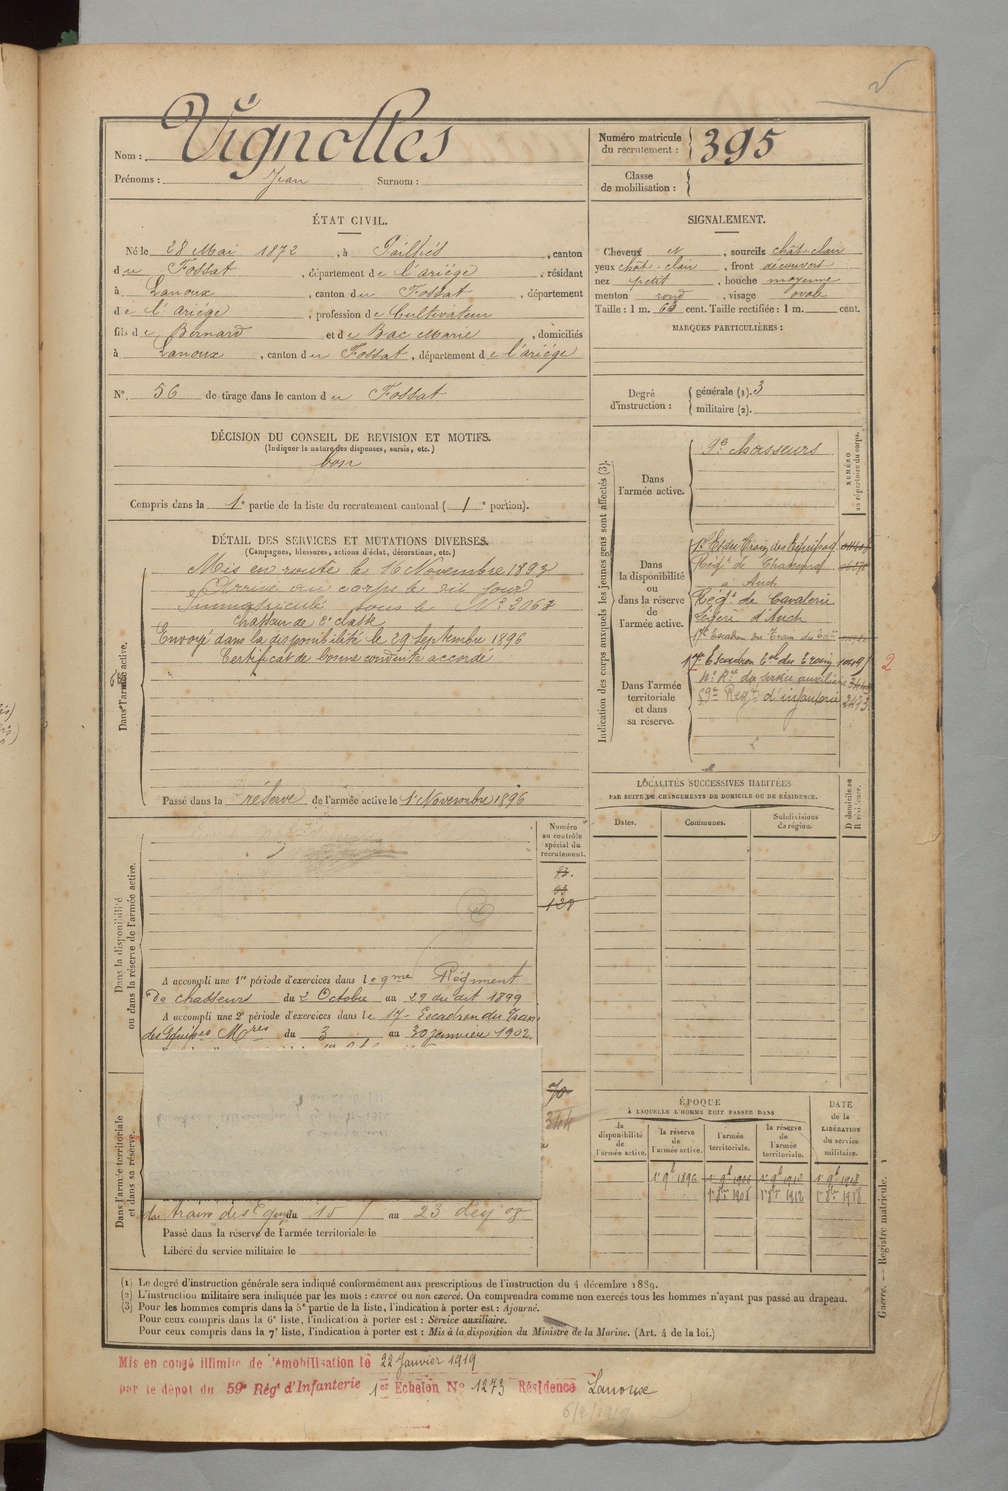 Nom : Vignolles
Prénoms : Jean Surnom :
Numéro matricule du recrutement : 395
Classe de mobilisation :
ÉTAT CIVIL.
Né le 28 Mai 1872, à Pailhès, canton
du Fossat, département de l'ariége, résidant
à Lanoux, canton du Fossat, département
de l'ariége, profession de Cultivateur
fils de Bernard et de Bac Marie, domiciliés
à Lanoux, canton du Fossat, département de l'ariége
N° 56 de tirage dans le canton du Fossat
SIGNALEMENT.
Cheveux et, sourcils chât-clair
yeux chât-clair, front découvert
nez petit, bouche moyenne
menton rond, visage ovale
Taille : 1 m. 63 cent. Taille rectifiée : 1 m. cent.
MARQUES PARTICULIÈRES :
Degré d'instruction : générale (1). 3
militaire (2).
DÉCISION DU CONSEIL DE REVISION ET MOTIFS.
(Indiquer la nature des dispenses, sursis, etc.)
bon
Compris dans la 1e partie de la liste du recrutement cantonal (1e portion).
DÉTAIL DES SERVICES ET MUTATIONS DIVERSES.
(Campagnes, blessures, actions d'éclat, décorations, etc.)
Dans l'armée active.
Mis en route le 16 Novembre 1893
Arrivé au corps le dit jour
Immatriculé sous le N° 2063
Chasseur de 2e classe
Envoyé dans la disponibilité le 29 Septembre 1896
Certificat de bonne conduite accordé
Passé dans la réserve de l'armée active le 1er Novembre 1896
Indication des corps auxquels les jeunes gens sont affectés (3).
NUMÉRO au répertoire du corps.
Dans l'armée active.
9e Chasseurs
Dans la disponibilité ou dans la réserve de l'armée active.
Régt de Chasseurs
à Auch
Régt de Cavalerie
Légère d'Auch
17e Escadron du Train
Dans l'armée territoriale et dans sa réserve.
17e Escadron du Train
59e Régt d'infanterie 2475
2
LOCALITÉS SUCCESSIVES HABITÉES
PAR SUITE DE CHANGEMENTS DE DOMICILE OU DE RÉSIDENCE.
Dates. Communes. Subdivisions de région. D domicile ou R résidence.
Dans la disponibilité ou dans la réserve de l'armée active.
Numéro au contrôle spécial du recrutement.
A accompli une 1re période d'exercices dans le 9me Régiment
de chasseurs du 2 Octobre au 29 du dit 1899
A accompli une 2e période d'exercices dans le 17e Escadron du Train
des Equipes Mres du 3 au 30 janvier 1902.
Dans l'armée territoriale et dans sa réserve.
70
344
du train des Equip du 15 au 23 Sep 08
Passé dans la réserve de l'armée territoriale le
Libéré du service militaire le
ÉPOQUE
À LAQUELLE L'HOMME DOIT PASSER DANS
la disponibilité de l'armée active. la réserve de l'armée active. l'armée territoriale. la réserve de l'armée territoriale.
DATE de la LIBÉRATION du service militaire.
1er 9b 1896 1er 9b 1906 1er 9b 1912 1er 9b 1918
1er 8br 1908 1er 8br 1912 1er 8br 1918
(1) Le degré d'instruction générale sera indiqué conformément aux prescriptions de l'instruction du 4 décembre 1889.
(2) L'instruction militaire sera indiquée par les mots : exercé ou non exercé. On comprendra comme non exercés tous les hommes n'ayant pas passé au drapeau.
(3) Pour les hommes compris dans la 5e partie de la liste, l'indication à porter est : Ajourné.
Pour ceux compris dans la 6e liste, l'indication à porter est : Service auxiliaire.
Pour ceux compris dans la 7e liste, l'indication à porter est : Mis à la disposition du Ministre de la Marine. (Art. 4 de la loi.)
Guerre. — Registre matricule. 1
Mis en congé illimité de démobilisation le 22 Janvier 1919
par le dépôt du 59e Régt d'Infanterie 1er Echelon N° 1273 Résidence Lanoux